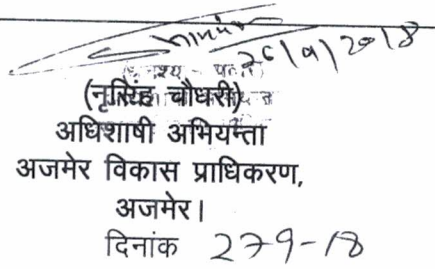 26/9/2018
(नृसिंह चौधरी)
अधिशाषी अभियन्ता
अजमेर विकास प्राधिकरण,
अजमेर।
दिनांक 27-9-18